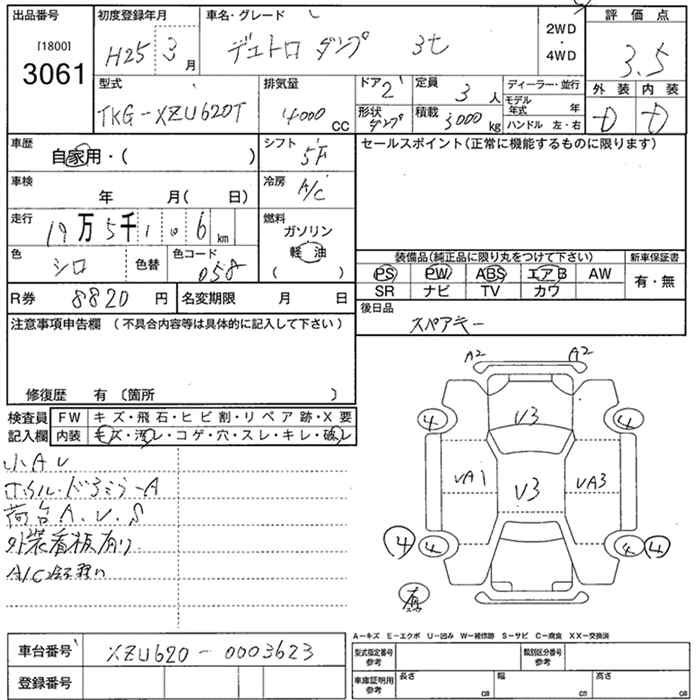 出品番号
[1800]
3061
初度登録年月
H25 3月
車名・グレード
デュトロ ダンプ 3t
2WD
・
4WD
評価点
3.5
外装 内装
D D
型式
TKG-XZU620T
排気量
4000 CC
ドア 2
形状 ダンプ
定員 3人
積載 3000 kg
ディーラー・並行
モデル年式 年
ハンドル 左・右
車歴
自家用・( )
シフト
5F
セールスポイント(正常に機能するものに限ります)
車検
年 月( 日)
冷房
A/C
走行
19万5千106km
燃料
ガソリン
軽油
( )
色
シロ
色替
色コード
058
装備品(純正品に限り丸をつけて下さい)
新車保証書
PS PW ABS エアB AW
SR ナビ TV カワ
有・無
R券 8820円
名変期限 月 日
後日品
スペアキー
注意事項申告欄 (不具合内容等は具体的に記入して下さい)
修復歴 有 (箇所 )
検査員
記入欄
FW キズ・飛石・ヒビ割・リペア跡・X要
内装 キズ・汚レ・コゲ・穴・スレ・キレ・破レ
小AU
荷台A.U.S
外装看板有り
A/C
A2 A2
V3
4 4
UA1 V3 UA3
4 4 4 4
A-キズ E-エクボ U-凹み W-補修跡 S-サビ C-腐食 XX-交換済
車台番号 XZU620-0003623
登録番号
型式指定番号
参考
類別区分番号
参考
車庫証明用
参考
長さ cm
幅 cm
高さ cm